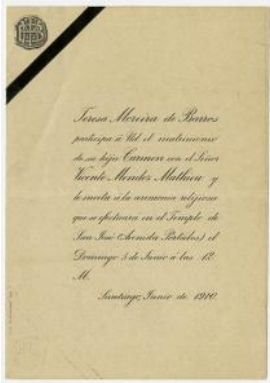 Teresa Moreira de Barros
participa á Ud el matrimonio
de su hija Carmen con el Señor
Vicente Mendez Mathieu y
le invita á la ceremonia religiosa
que se efectuará en el Templo de
San José (Avenida Portales) el
Domingo 5 de Junio a las 12
M.
Santiago, Junio de 1910.